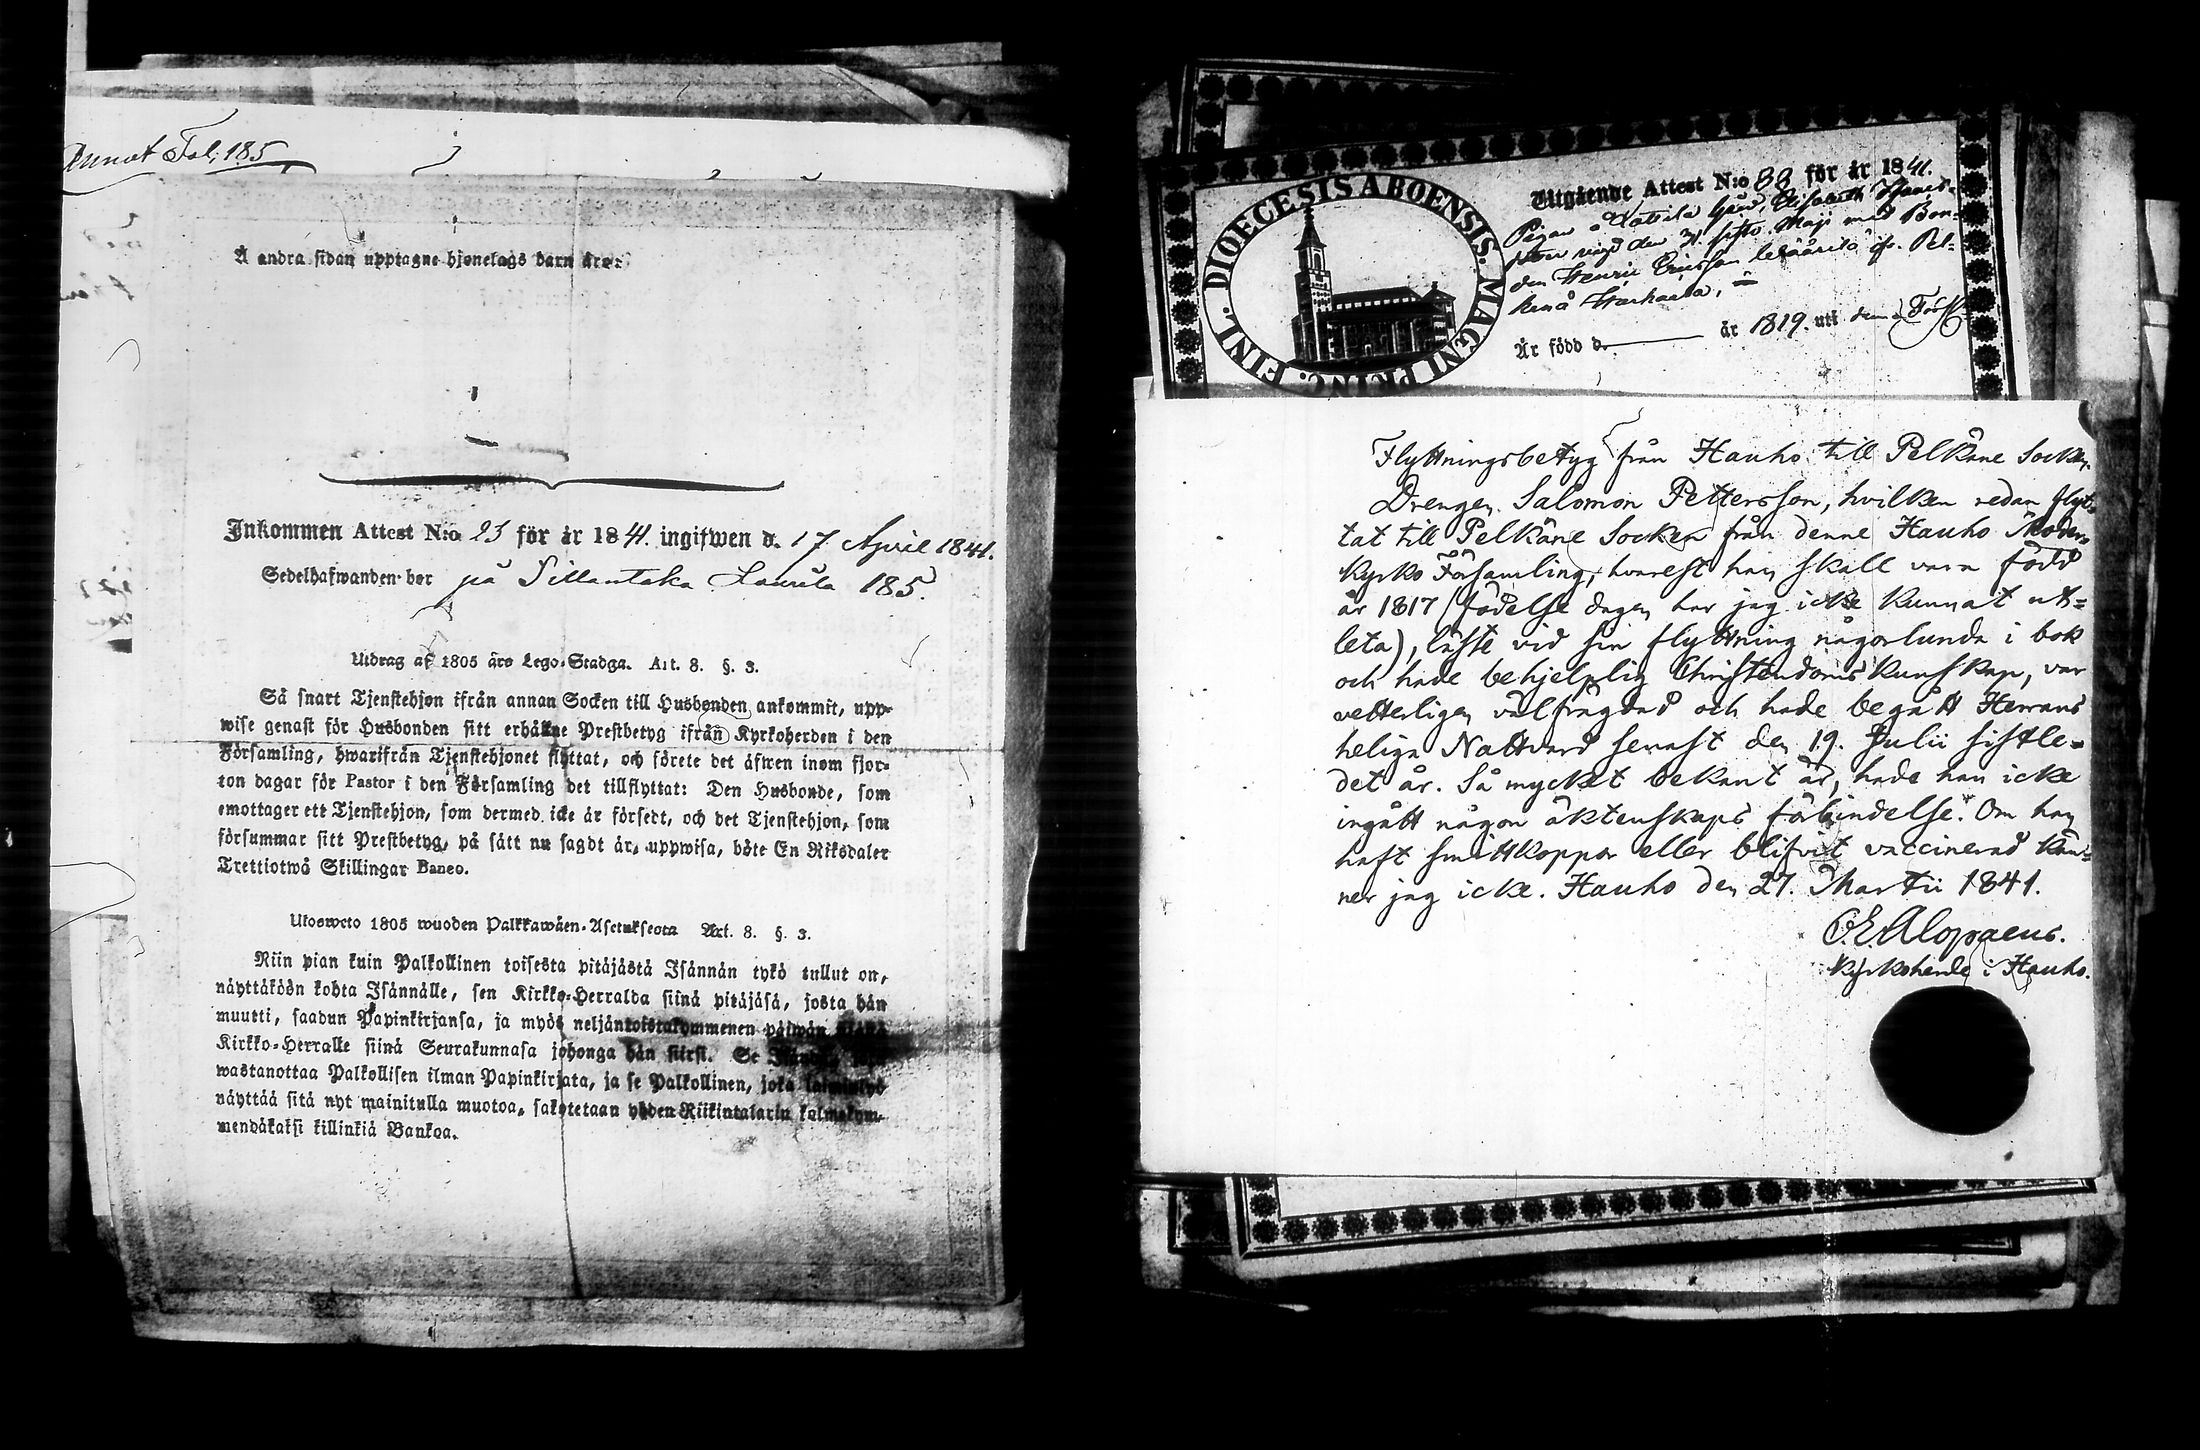 Annot Fol; 185
Å andra sidan upptagne hjonelags barn äro:
Inkommen Attest N:o 23 för år 1841. ingifwen d. 17 April 1841.
Sedelhafwanden bor på Sillantaka Laurila 185.
Utdrag af 1805 års Lego-Stadga. Art. 8. §. 3.
Så snart Tjenstehjon ifrån annan Socken till Husbonden ankommit, upp-
wise genast för Husbonden sitt erhållne Prestbetyg ifrån Kyrkoherden i den
Församling, hwarifrån Tjenstehjonet flyttat, och förete det äfwen inom fjor-
ton dagar för Pastor i den Församling det tillflyttat: Den Husbonde, som
emottager ett Tjenstehjon, som dermed icke är försedt, och det Tjenstehjon, som
försummar sitt Prestbetyg, på sätt nu sagdt är, uppwisa, böte En Riksdaler
Trettiotwå Skillingar Banco.
Ulosweto 1805 wuoden Palkkawäen-Asetuksesta Art. 8. §. 3.
Niin pian kuin Palkollinen toisesta pitäjästä Isännän tykö tullut on,
näyttäköön kohta Isännälle, sen Kirkko-Herralda siinä pitäjäsä, josta hän
muutti, saadun Papinkirjansa, ja myös neljäntoistakymmenen päiwän
Kirkko-Herralle siinä Seurakunnasa johonga hän siirsi. Se
wastanottaa Palkollisen ilman Papinkirjata, ja se Palkollinen, joka
näyttää sitä nyt mainitulla muotoa, sakotetaan yhden Riikintalarin kolmekym-
mendäkaksi killinkiä Bankoa.
DIOECESIS ABOENSIS. MAGNI PRINC. FINL.
Utgående Attest N:o 88 för år 1841.
Pigan å Katila Gård, Elisabeth
den 31 sisto Maji med Bon-
den Henric Ericsson
Är född d. år 1819. uti
Flyttningsbetyg från Hauho till Pelkäne Socken.
Drengen Salomon Pettersson, hvilken redan flyt-
tat till Pelkäne Socken från denne Hauho Moder-
kyrko Församling, hvarest han skall vara född
år 1817 (födelse dagen har jag icke kunnat ut=
leta), läste vid sin flyttning någorlunda i bok
och hade behjelplig Christendoms kunskap, var
vetterligen välfrägdad och hade begått Herrans
heliga Nattvard senast den 19. Julii sistle=
det år. Så mycket bekant är, hade han icke
ingått någon äktenskaps förbindelse. Om han
haft smittkoppor eller blifvit vaccinerad kän=
ner jag icke. Hauho den 27. Martii 1841.
C. E. Alopaeus.
Kyrkoherde i Hauho.